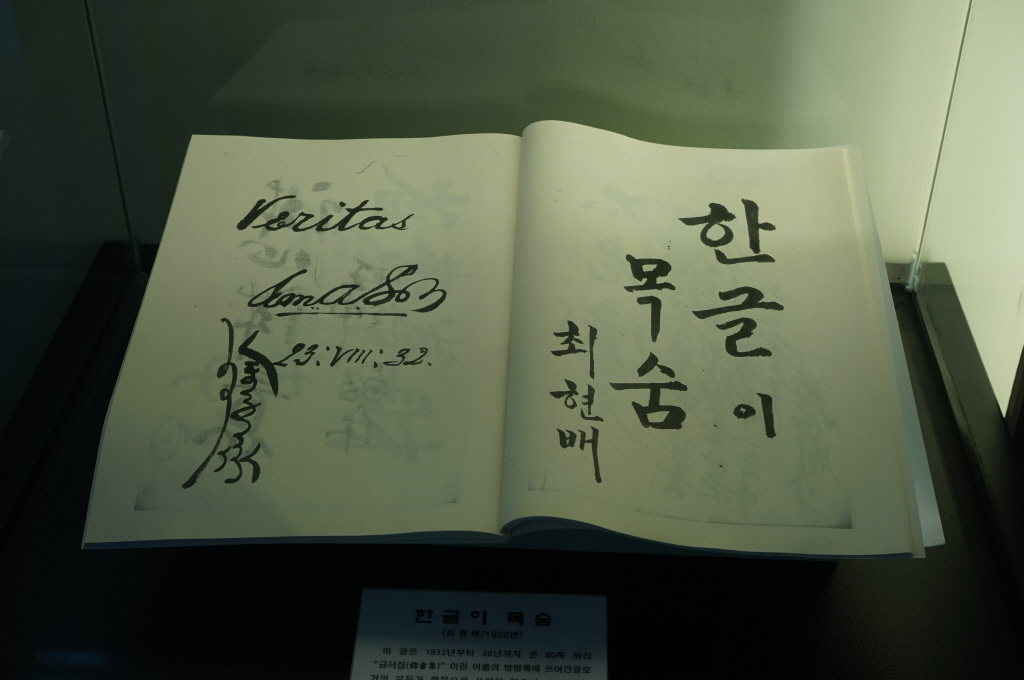 Veritas
23:VIII:32.
한글이
목숨
최현배
한글이 목숨
(최현배/1932년)
이 글은 1932년부터 36년까지 쓴 80쪽 짜리
"금서집(錦書集)" 이란 이름의 방명록에 쓰여진글로